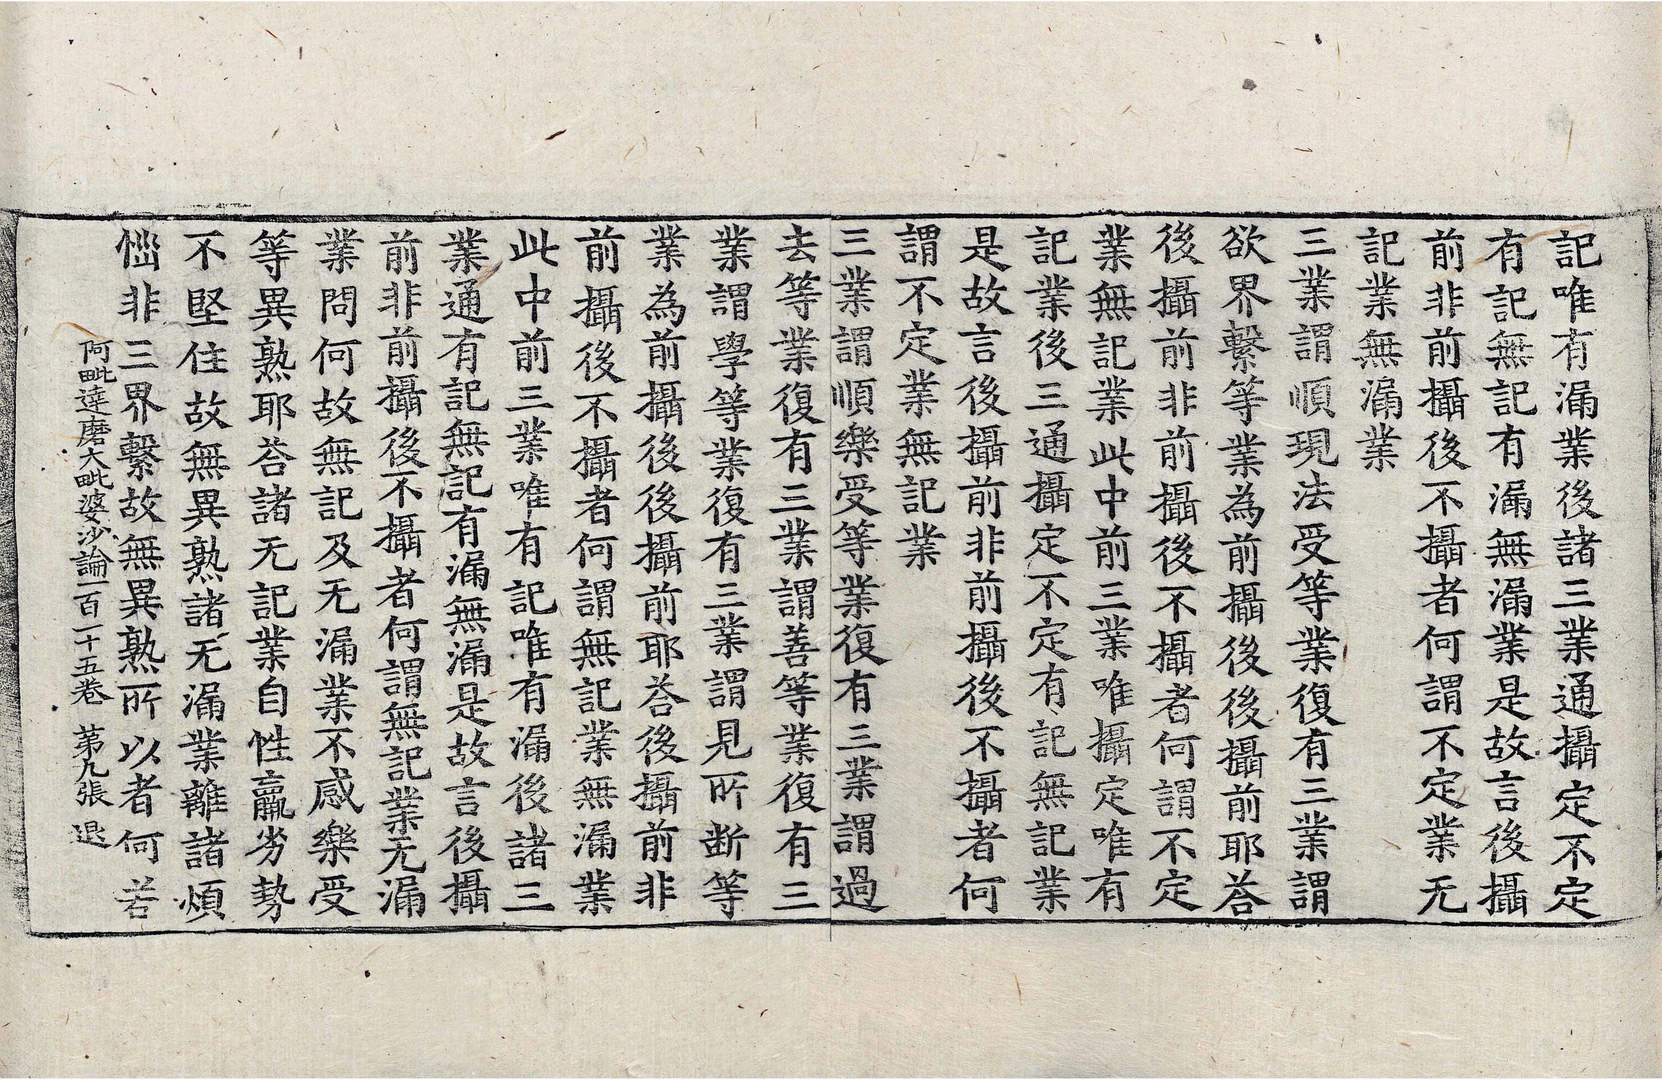 記唯有漏業後諸三業通攝定不定
有記無記有漏無漏業是故言後攝
前非前攝後不攝者何謂不定業无
記業無漏業
三業謂順現法受等業復有三業謂
欲界繫等業為前攝後後攝前耶荅
後攝前非前攝後不攝者何謂不定
業無記業此中前三業唯攝定唯有
記業後三通攝定不定有記無記業
是故言後攝前非前攝後不攝者何
謂不定業無記業
三業謂順樂受等業復有三業謂過
去等業復有三業謂善等業復有三
業謂學等業復有三業謂見所断等
業為前攝後後攝前耶荅後攝前非
前攝後不攝者何謂無記業無漏業
此中前三業唯有記唯有漏後諸三
業通有記無記有漏無漏是故言後攝
前非前攝後不攝者何謂無記業无漏
業問何故無記及无漏業不感樂受
等異熟耶荅諸无記業自性羸劣勢
不堅住故無異熟諸无漏業離諸煩
惱非三界繫故無異熟所以者何若
阿毗達磨大毗婆沙論一百一十五卷 第九張 退